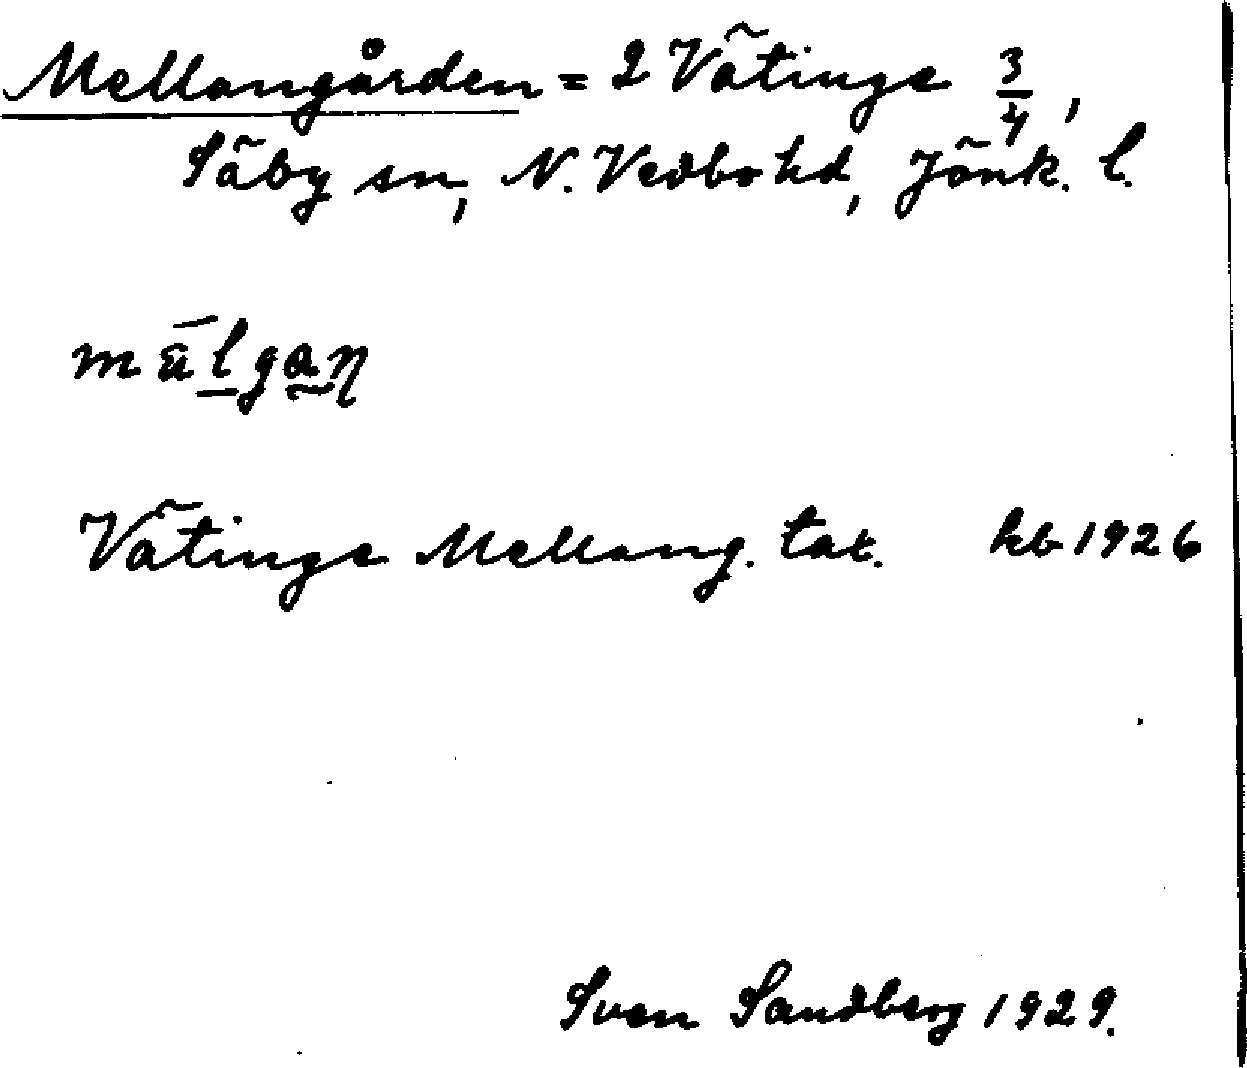 Mellangården = 2 Vätinge 3/4,
Säby sn, N. Vedbo hd, Jönk. l.
Vätinge Mellang. tat. kb 1926
Sven Sandberg 1929.